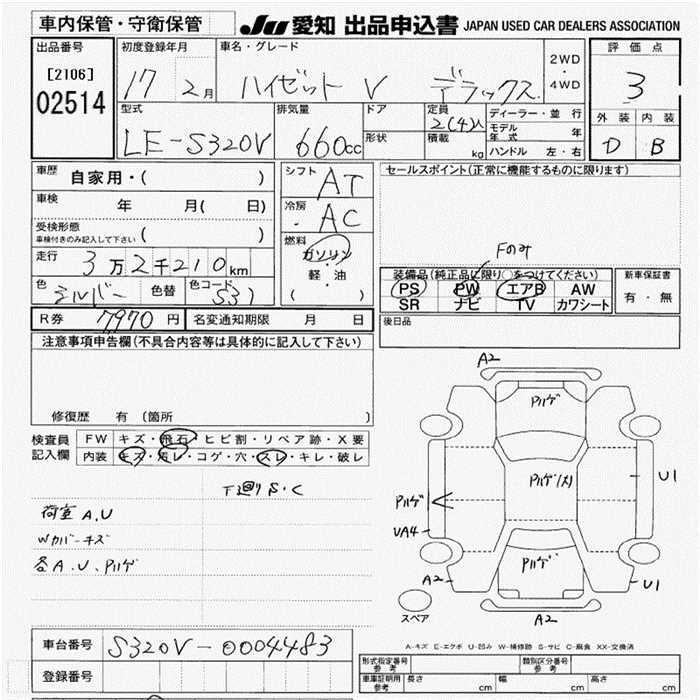 車内保管・守衛保管
JU 愛知 出品申込書 JAPAN USED CAR DEALERS ASSOCIATION
出品番号
[2106]
02514
初度登録年月
17 2月
車名・グレード
ハイゼット V デラックス
2WD
・
4WD
評価点
3
外装 内装
D B
型式
LE-S320V
排気量
660cc
ドア
形状
定員
2(4)人
積載
kg
ディーラー・並行
モデル年式 年
ハンドル 左・右
車歴
自家用・( )
車検
年 月( 日)
受検形態
車検付きのみ記入して下さい ( )
走行
3万2千210km
色
シルバー
色替
色コード
S31
シフト
AT
冷房
AC
燃料
ガソリン
・
軽油
( )
セールスポイント(正常に機能するものに限ります)
Fのみ
装備品(純正品に限り○をつけてください)
PS PW エアB AW
SR ナビ TV カワシート
新車保証書
有・無
後日品
R券 7970円
名変通知期限 月 日
注意事項申告欄(不具合内容等は具体的に記入して下さい)
修復歴 有(箇所 )
検査員記入欄
FW キズ・飛石・ヒビ割・リペア跡・X要
内装 キズ・汚レ・コゲ・穴・スレ・キレ・破レ
下廻りS・C
荷室 A,U
Wカバーキズ
各A.U、Pハゲ
A2
Pハゲ
Pハゲ(大)
Pハゲ
UA4
A2
Pハゲ
U1
U1
A2
スペア
A-キズ E-エクボ U-凹み W-補修跡 S-サビ C-腐食 XX-交換済
車台番号 S320V-0004483
登録番号
形式指定番号 参考
類別区分番号 参考
車庫証明用 参考
長さ cm
幅 cm
高さ cm